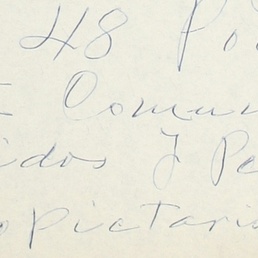 48 Po
Comun
idos y Pe
opietario